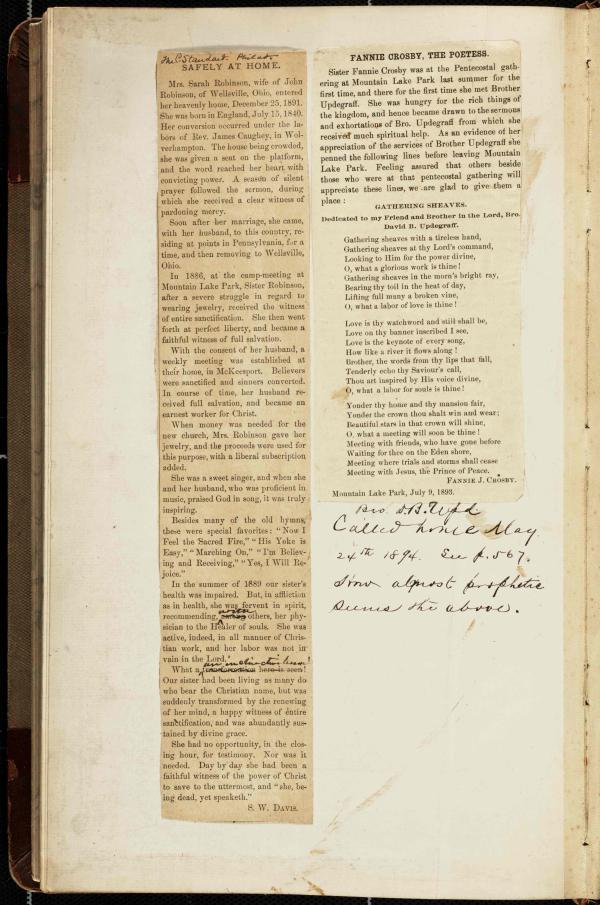 The C. Standard. Philada
SAFELY AT HOME.
Mrs. Sarah Robinson, wife of John
Robinson, of Wellsville, Ohio, entered
her heavenly home, December 25, 1891.
She was born in England, July 15, 1840.
Her conversion occurred under the la-
bors of Rev. James Caughey, in Wol-
verhampton. The house being crowded,
she was given a seat on the platform,
and the word reached her heart with
convicting power. A season of silent
prayer followed the sermon, during
which she received a clear witness of
pardoning mercy.
Soon after her marriage, she came,
with her husband, to this country, re-
siding at points in Pennsylvania, for a
time, and then removing to Wellsville,
Ohio.
In 1886, at the camp-meeting at
Mountain Lake Park, Sister Robinson,
after a severe struggle in regard to
wearing jewelry, received the witness
of entire sanctification. She then went
forth at perfect liberty, and became a
faithful witness of full salvation.
With the consent of her husband, a
weekly meeting was established at
their home, in McKeesport. Believers
were sanctified and sinners converted.
In course of time, her husband re-
ceived full salvation, and became an
earnest worker for Christ.
When money was needed for the
new church, Mrs. Robinson gave her
jewelry, and the proceeds were used for
this purpose, with a liberal subscription
added.
She was a sweet singer, and when she
and her husband, who was proficient in
music, praised God in song, it was truly
inspiring.
Besides many of the old hymns,
these were special favorites: "Now I
Feel the Sacred Fire," "His Yoke is
Easy," "Marching On," "I'm Believ-
ing and Receiving," "Yes, I Will Re-
joice."
In the summer of 1889 our sister's
health was impaired. But, in affliction
as in health, she was fervent in spirit,
recommending, with others, her phy-
sician to the Healer of souls. She was
active, indeed, in all manner of Chris-
tian work, and her labor was not in
vain in the Lord.
What a an instructive lesson!
transformation here is seen!
Our sister had been living as many do
who bear the Christian name, but was
suddenly transformed by the renewing
of her mind, a happy witness of entire
sanctification, and was abundantly sus-
tained by divine grace.
She had no opportunity, in the clos-
ing hour, for testimony. Nor was it
needed. Day by day she had been a
faithful witness of the power of Christ
to save to the uttermost, and "she, be-
ing dead, yet speaketh."
S. W. DAVIS.
FANNIE CROSBY, THE POETESS.
Sister Fannie Crosby was at the Pentecostal gath-
ering at Mountain Lake Park last summer for the
first time, and there for the first time she met Brother
Updegraff. She was hungry for the rich things of
the kingdom, and hence became drawn to the sermons
and exhortations of Bro. Updegraff from which she
received much spiritual help. As an evidence of her
appreciation of the services of Brother Updegraff she
penned the following lines before leaving Mountain
Lake Park. Feeling assured that others beside
those who were at that pentecostal gathering will
appreciate these lines, we are glad to give them a
place:
GATHERING SHEAVES.
Dedicated to my Friend and Brother in the Lord, Bro.
David B. Updegraff.
Gathering sheaves with a tireless hand,
Gathering sheaves at thy Lord's command,
Looking to Him for the power divine,
O, what a glorious work is thine!
Gathering sheaves in the morn's bright ray,
Bearing thy toil in the heat of day,
Lifting full many a broken vine,
O, what a labor of love is thine!
Love is thy watchword and still shall be,
Love on thy banner inscribed I see,
Love is the keynote of every song,
How like a river it flows along!
Brother, the words from thy lips that fall,
Tenderly echo thy Saviour's call,
Thou art inspired by His voice divine,
O, what a labor for souls is thine!
Yonder thy home and thy mansion fair,
Yonder the crown thou shalt win and wear;
Beautiful stars in that crown will shine,
O, what a meeting will soon be thine!
Meeting with friends, who have gone before
Waiting for thee on the Eden shore,
Meeting where trials and storms shall cease
Meeting with Jesus, the Prince of Peace.
FANNIE J. CROSBY.
Mountain Lake Park, July 9, 1893.
Bro. D.B. Upd
Called home May
24th 1894. See p. 567.
How almost prophetic
seems the above.